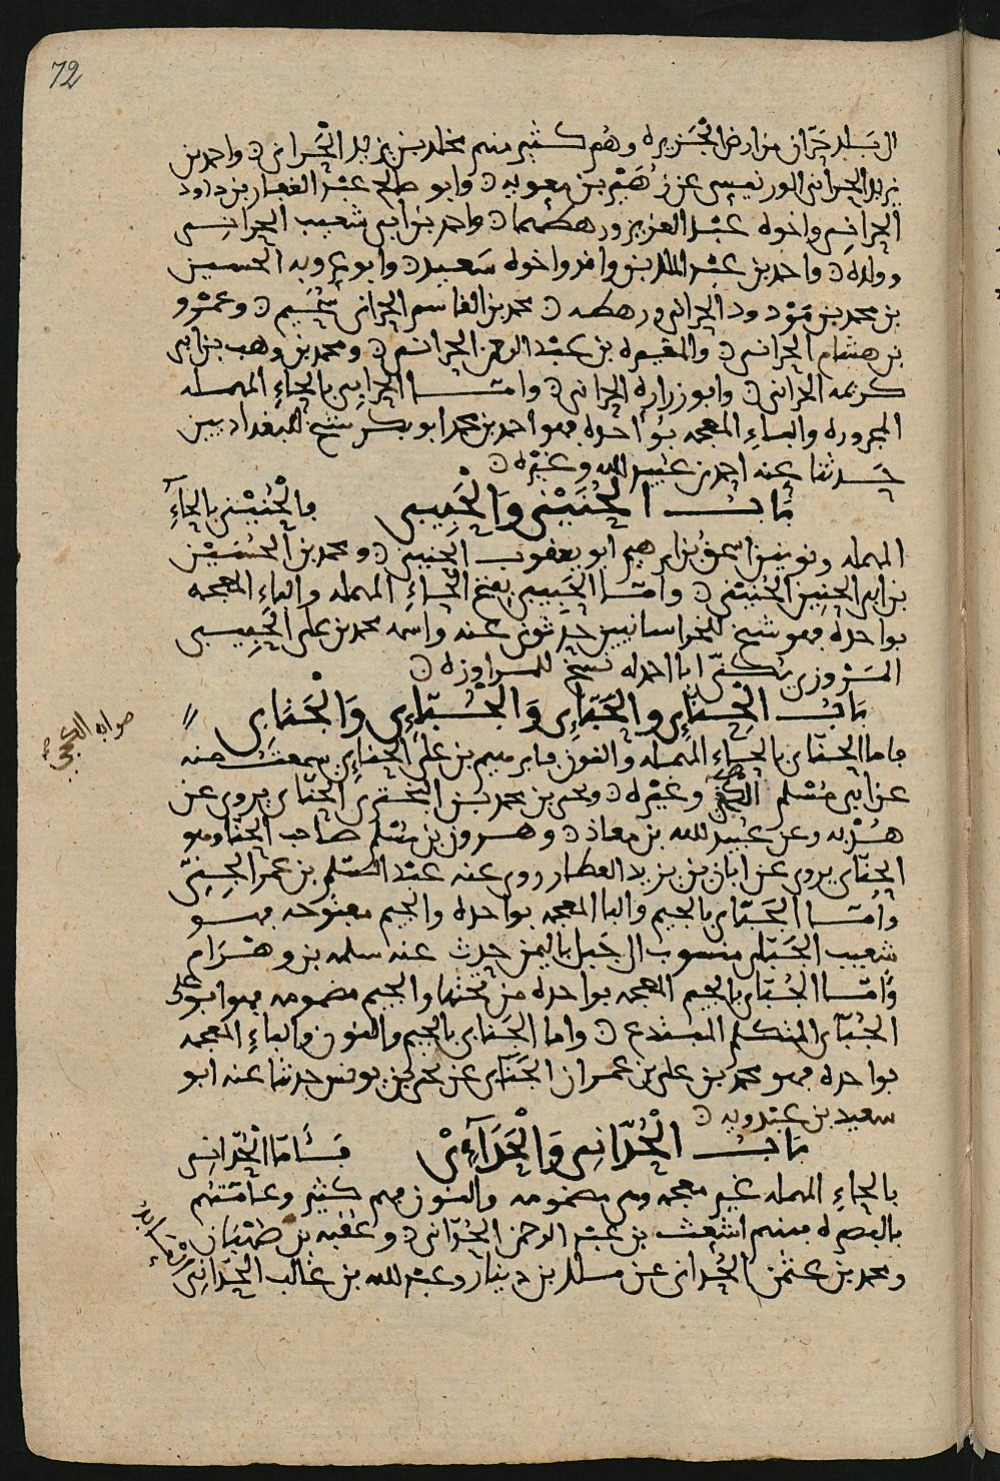 72
الى بلد حَرّان من ارض الجَزيره وهُم كثير منهم مخلد بن يزيد الحَراني ۞ واحمد بن
يزيد الحراني الورتنيسي عن زُهَيْر بن معويه ۞ وابو صالح عبْد الغفار بن داود
الحراني واخوه عبْد العزيز ورهطهما ۞ واحمد بن ابي شعيب الحراني
وولده ۞ واحمد بن عبْد الملك بن واقد واخوه سَعيد ۞ وابو عروبه الحسين
بن محمد بن مَوْدود الحراني ورهطه ۞ محمد بن القاسم الحراني سُحَيم ۞ وعمْرو
بن هشام الحراني ۞ والمغيره بن عبْد الرحمن الحراني ۞ ومحمد بن وهب بن ابي
كريمه الحراني ۞ وابو زراره الحراني ۞ وامّا الحرابي بالحاءِ المهمله
المجروره والباءِ المعجمه بواحده فهو احمد بن محمد ابو بكر شيخ للبغداديين
حَدثنا عنه احمد بن عبيد الله وغيْره ۞
بَابُ الحُنَيْني وَالحَبِيبي فالحُنَيْني بالحاءِ
المهمله ونونين اسحق بن ابرهيم ابو يعقوب الحنيني ۞ ومحمد بن الحُسَيْن
بن ابي الحنين الحُنيْني ۞ وامّا الحَبيبي بفتح الحاءِ المهمله والباءِ المعجمه
بواحده فهو شيخ للخراسانيين حدثونى عنه واسمه محمد بن علي الحَبِيبي
المَرْوزي يُكنّى ابا احمد له نسخ للمراوزه ۞
بَابُ الحِنّاءِي والجَبَّاءِي وَالجُبّاءِي وَالجَنابي
فاما الحنّاى بالحاءِ المهمله والنون فابرهيم بن علي الحنّاءِي سمعتُ منه
عن ابي مُسْلم الكجّي وغيْره ۞ ويحيى بن محمد بن البَخْتري الحنّاى يروي عن
هُدْبه وعن عُبيد الله بن معاذ ۞ وهرون بن مُسْلم صاحب الحنّا وهو
الحنّاى يروي عن ابان بن يزيد العطار روى عنه عبْد السّلم بن عمر الجِنّي
وأمّا الجَبَاى بالجيم والبا المعجمه بواحده والجيم مفتوحه فهو
شعيب الجَبَاى منسوب الى جَبل باليمن حدث عنه سلمه بن وهْرَام
وَامّا الجُبّاى بالجيم المعجمه بواحده من تحتها والجيم مضمومه فهو ابو علي
الجُبّاى المتكلم المبتدع ۞ واما الجَنابي بالجيم والنون والباءِ المعجمه
بواحده فهو محمد بن علي بن عمران الجَنّابي عن يحيى بن يونس حدثنا عنه ابو
سعيد بن عبْدويه ۞
بَابُ الحُدّانِي وَالحَدَآءِيْ فَأمّا الحُدّاني
بالحاءِ المهمله غير معجمه وهى مضمومه والنون فهم كثير وعامّتهُم
بالبصره منهم اشعث بن عبْد الرحمن الحُدّاني ۞ وعقبه بن صُهْبَان
ومحمد بن عثمن الحُدّاني عن مالك بن دينار وعبْد الله بن غالب الحدّاني
صوابه الكجي